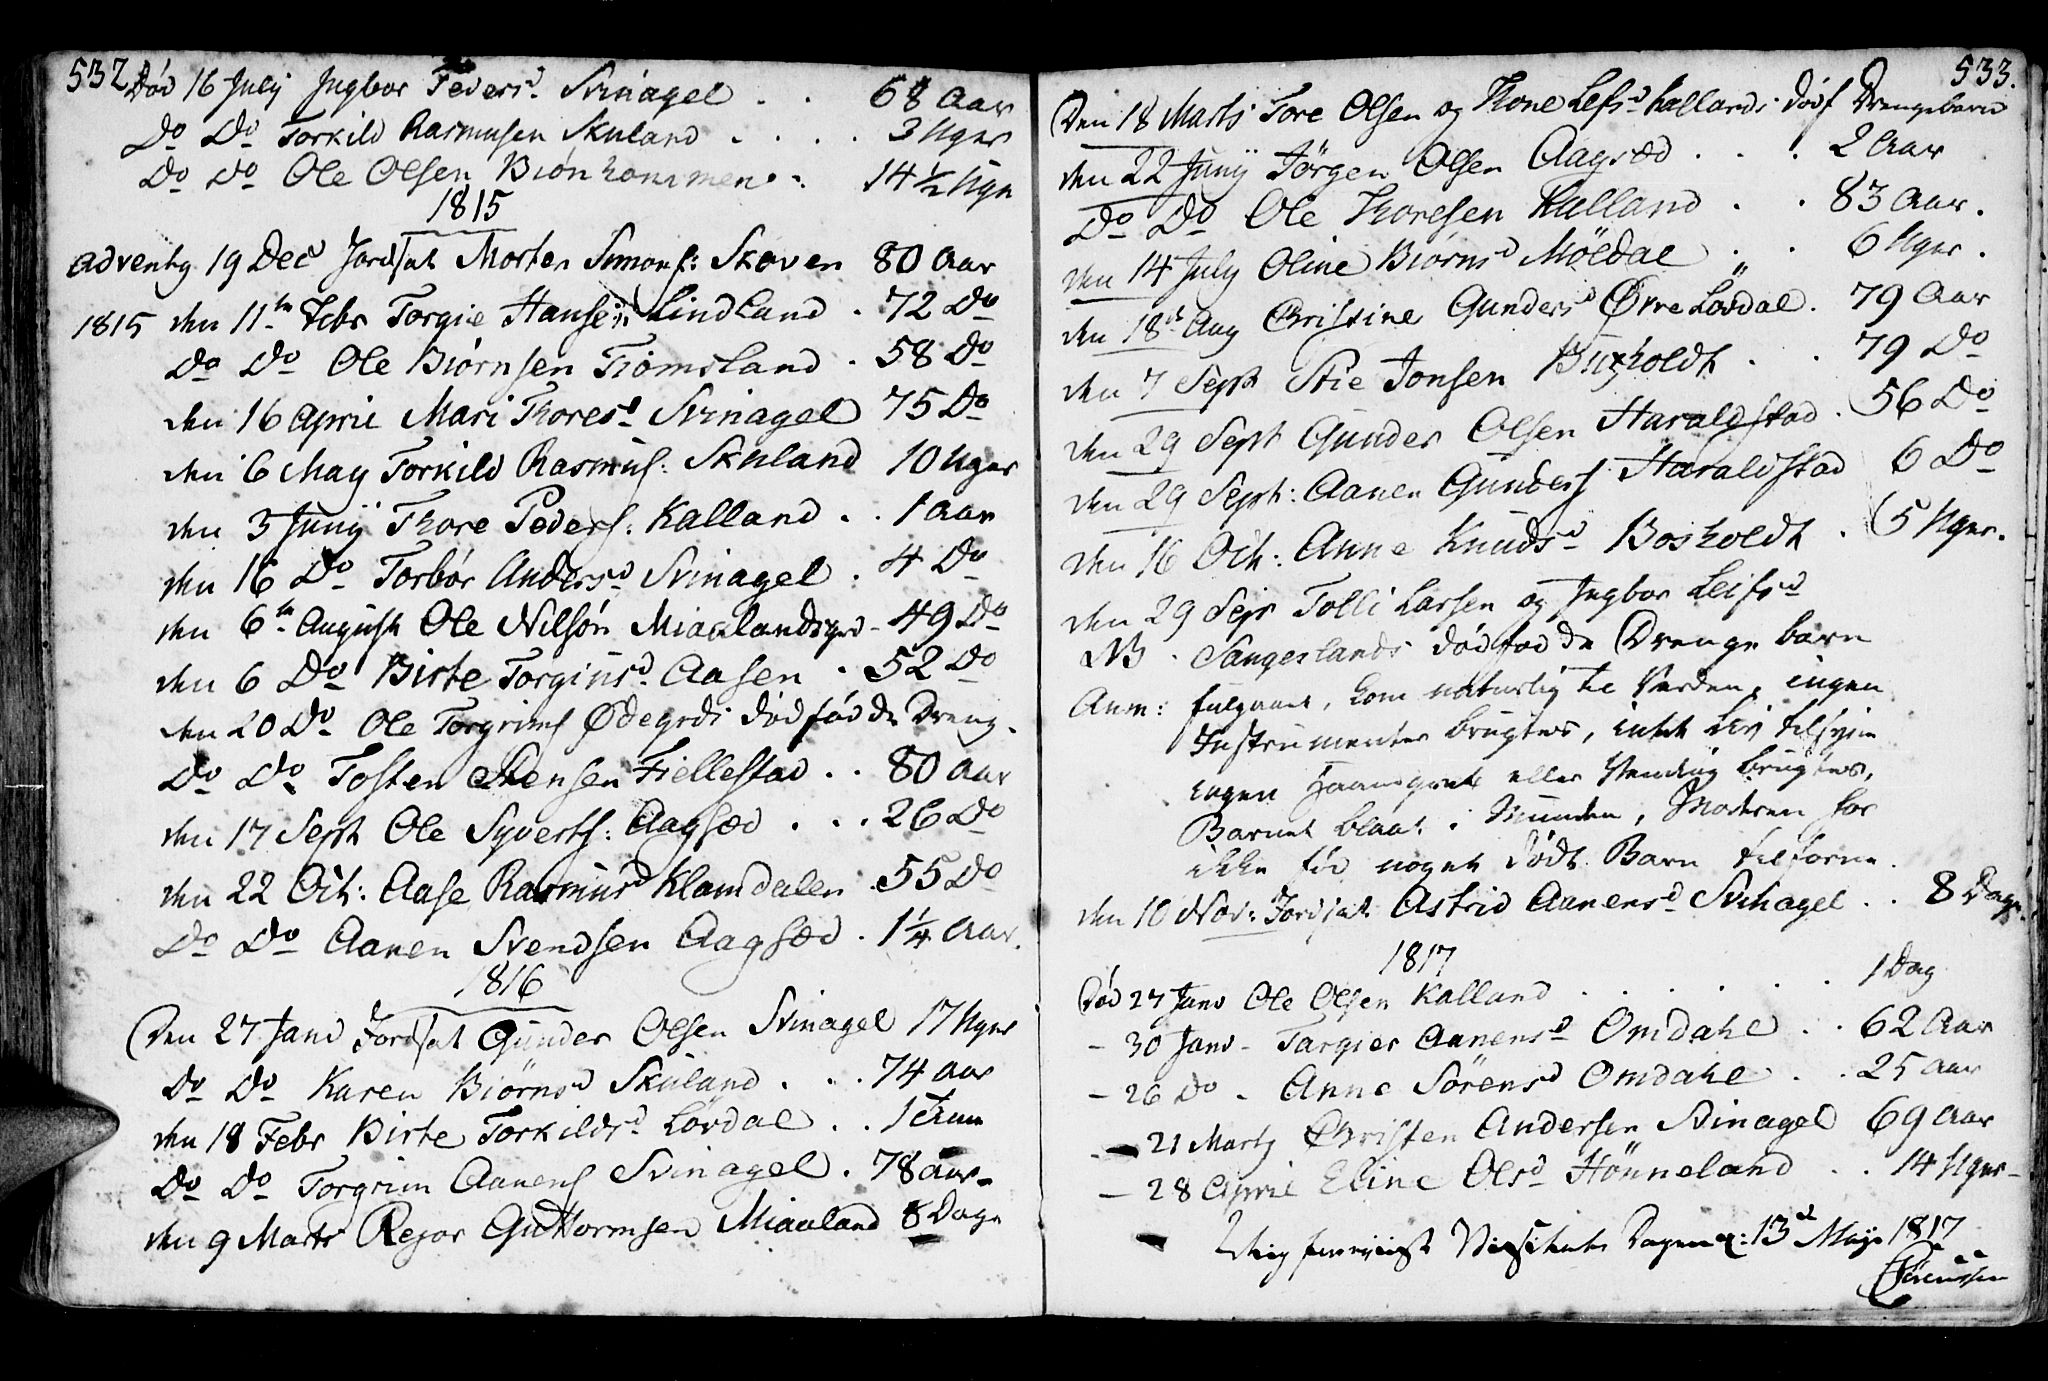 532
Død 16 July Ingbor Peders⸗d Svinagel . . 68 Aar
Do Do Torkild Rasmusen Skuland . . . . 3 Uger
Do Do Ole Olsen Biønkommen . . 14 1/2 Uge
1815
Advent 19 Dec Jordsat Morten Simons: Skoven 80 Aar
1815 den 11te Febr Torgie Hansen Lindland . 72 Do
Do Do Ole Biørnsen Tiomsland . 58 Do
den 16 April Mari Thoresd Svinagel 75 Do
den 6 May Torkild Rasmus: Skuland 10 Uger
den 3 Junij Thore Peders: Kalland . . 1 Aar
den 16 Do Torbør Andersd Svinagel . 4 Do
den 6te August Ole Nilsøn Mialandsgrd - 49 Do
den 6 Do Birte Torginsd Aasen . 52 Do
den 20 Do Ole Torgrims Ødegrdi død fødde Dreng .
Do Do Tosten Stensen Fiellestad . . 80 Aar
den 17 Sept Ole Syverts: Aagsæd . . . 26 Do
den 22 Oct: Aase Rasmusd Klamdalen . 55 Do
Do Do Aanen Svendsen Aagsæd . 1 1/4 Aar.
1816
Den 27 Janv Jordsat Gunder Olsen Svinagel 17 Uger
Do Do Karen Biørnsd Skuland . . . 74 Aar
den 18 Febr Birte Torkildsd Løvdal . . 1
Do Do Torgrim Aanens Svinagel . 78 aar-
den 9 Marts Rejor Guttormsen Miaaland 8 Dage
533.
Den 18 Marts Tore Olsen og Thone Lefsd Kallands Dødf Drengebarn
den 22 Junij Jörgen Olsen Aagsæd . . . 2 Aar
Do Do Ole Thoresen Kalland . . 83 Aar.
den 14 July Oline Biørnsd Möldal . . 6 Uger .
den 18de Aug Christine Gundersd Øvre Lovdal . 79 Aar
den 7 Sept Stie Jonsen Buxholdt . . 79 Do
den 29 Sept Gunder Olsen Haraldstad . 56 Do
den 29 Sept: Aanen Gunders Haraldstad 6 Do
den 16 Oct: Anne Knudsd Bosholdt . 5 Uger.
den 29 Sept Tolli Larsen og Ingbor Leifsd
NB . Sangeslands dødfødde Drenge barn
Anm: fulgaaet, kom naturlig til Verden, ingen
Instrumenter brugtes, intet Liv tilsyne
ingen Haandgreb eller Vending brugtes,
Barnet blaat i Munden, Moderen har
ikke fød noget dødt Barn tilforne .
den 10 Nov: Jordsat Astrid Aanensd Svinagel . . 8 Dage
1817
Død 27 Janv Ole Olsen Kalland . . . . . . 1 Dag
- 30 Janv - Targier Aanensd Omdahl . . 62 Aar
- 26 Do - Anne Sørensd Omdahl . . 25 Aar
- 21 Marts Christen Andersen Svinagel 69 Aar
- 28 April Eline Olsd Hönneland . . 14 Uger-
Mig foreviist Visitats Dagen d: 13d Maji 1817
Sørenssen